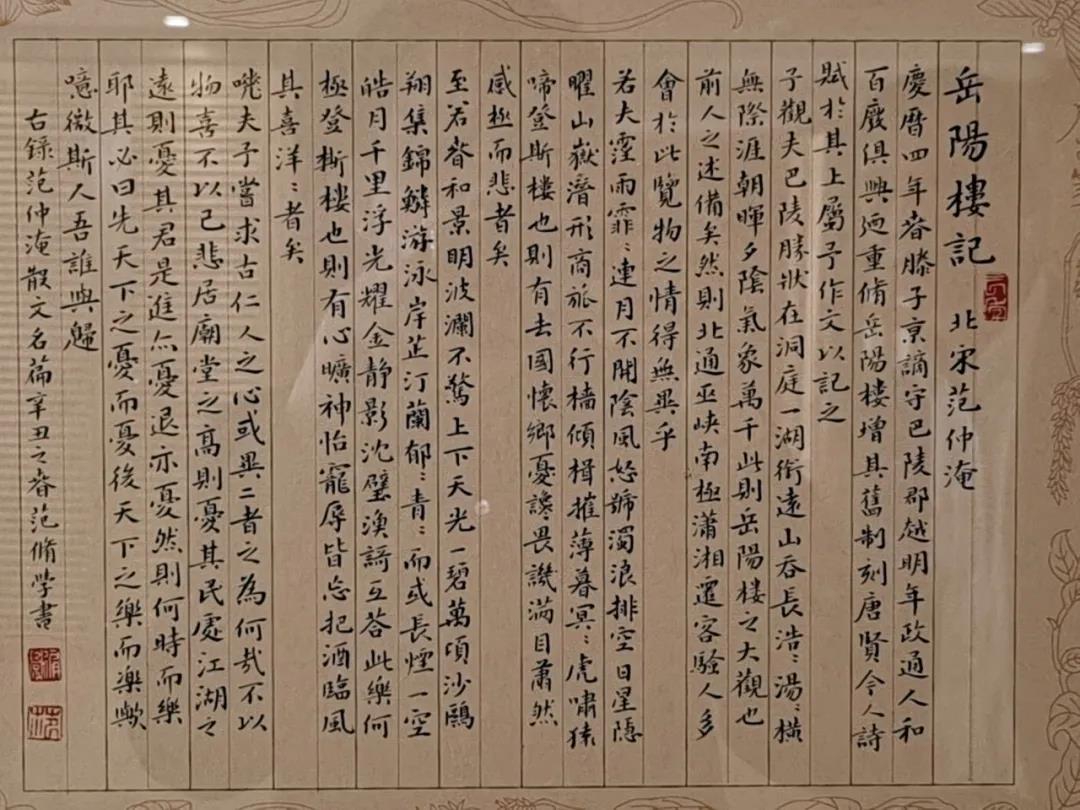 岳陽樓記 北宋范仲淹
慶曆四年春滕子京謫守巴陵郡越明年政通人和
百廢俱興廼重脩岳陽樓增其舊制刻唐賢今人詩
賦於其上屬予作文以記之
予觀夫巴陵勝狀在洞庭一湖銜遠山吞長浩〻湯〻橫
無際涯朝暉夕陰氣象萬千此則岳陽樓之大觀也
前人之述備矣然則北通巫峽南極瀟湘遷客騷人多
會於此覽物之情得無異乎
若夫霪雨霏〻連月不開陰風怒號濁浪排空日星隱
曜山嶽潛形商旅不行檣傾楫摧薄暮冥〻虎嘯猿
啼登斯樓也則有去國懷鄉憂讒畏譏滿目蕭然
感極而悲者矣
至若春和景明波瀾不驚上下天光一碧萬頃沙鷗
翔集錦鱗游泳岸芷汀蘭郁〻青〻而或長煙一空
皓月千里浮光耀金靜影沈璧漁謌互答此樂何
極登斯樓也則有心曠神怡寵辱皆忘把酒臨風
其喜洋〻者矣
嘰夫予嘗求古仁人之心或異二者之為何哉不以
物喜不以己悲居廟堂之高則憂其民處江湖之
遠則憂其君是進亦憂退亦憂然則何時而樂
耶其必曰先天下之憂而憂後天下之樂而樂歟
噫微斯人吾誰與歸
右錄范仲淹散文名篇辛丑之春范脩學書